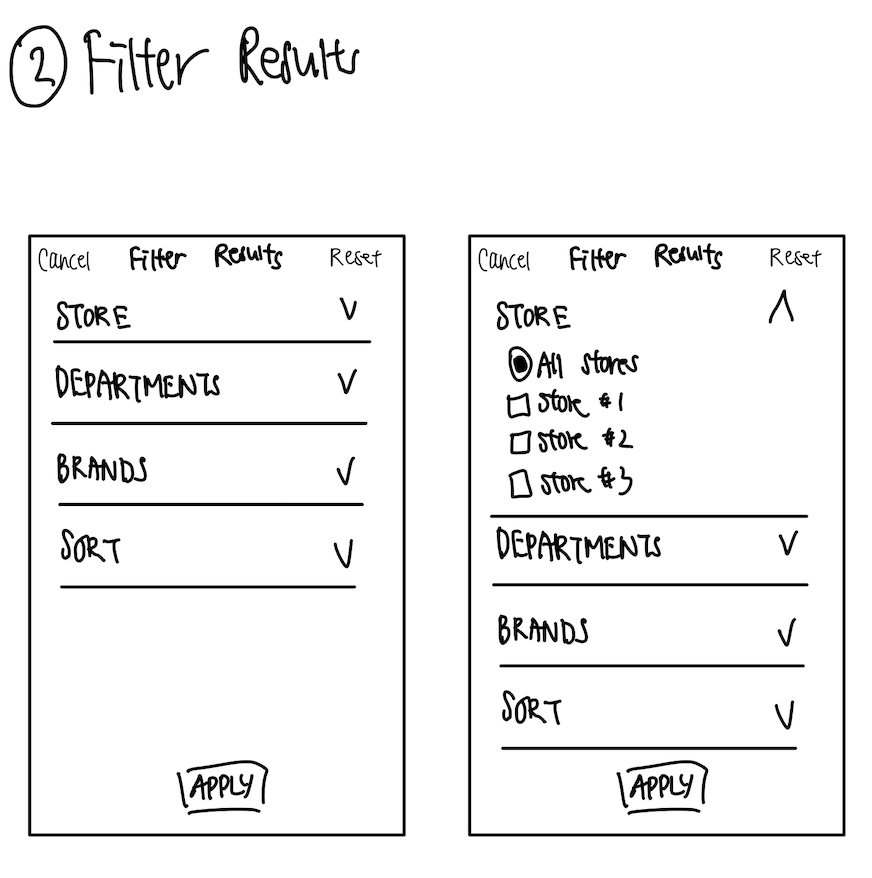 2 Filter Results
Cancel Filter Results Reset
STORE
DEPARTMENTS
BRANDS
SORT
APPLY
Cancel Filter Results Reset
STORE
All stores
store #1
store #2
store #3
DEPARTMENTS
BRANDS
SORT
APPLY